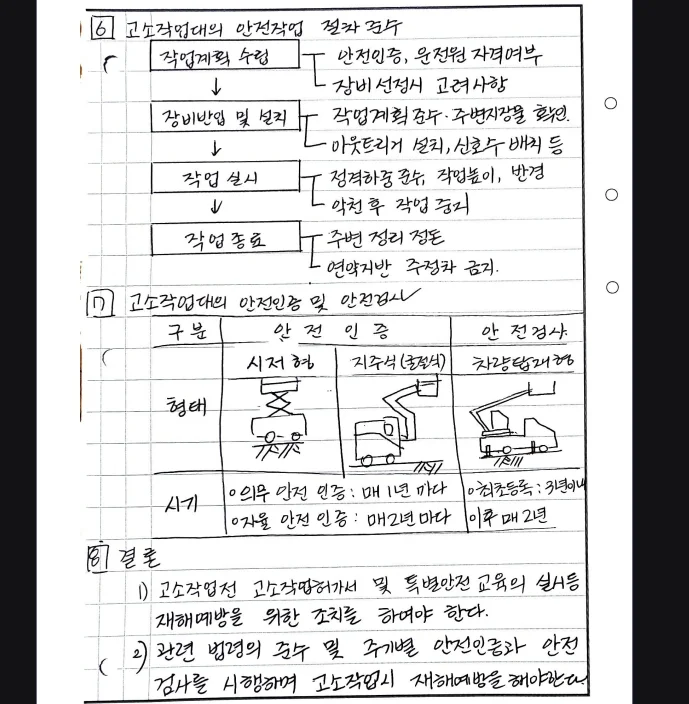 6 고소작업대의 안전작업 절차 준수
작업계획 수립 안전인증, 운전원 자격여부
↓ 장비선정시 고려사항
장비반입 및 설치 작업계획 준수·주변지장물 확인.
↓ 아웃트리거 설치, 신호수 배치 등
작업 실시 정격하중 준수, 작업높이, 반경
↓ 악천후 작업 중지
작업 종료 주변 정리 정돈
연약지반 주정차 금지.
7 고소작업대의 안전인증 및 안전검사
구분 안전인증 안전검사
시저형 지주식(굴절식) 차량탑재형
형태
시기 o의무 안전 인증 : 매 1년 마다 o최초등록 : 3년이내
o자율 안전 인증 : 매2년 마다 이후 매 2년
8 결론
1) 고소작업전 고소작업허가서 및 특별안전교육의 실시등
재해예방을 위한 조치를 하여야 한다.
2) 관련 법령의 준수 및 주기별 안전인증과 안전
검사를 시행하며 고소작업시 재해예방을 해야한다